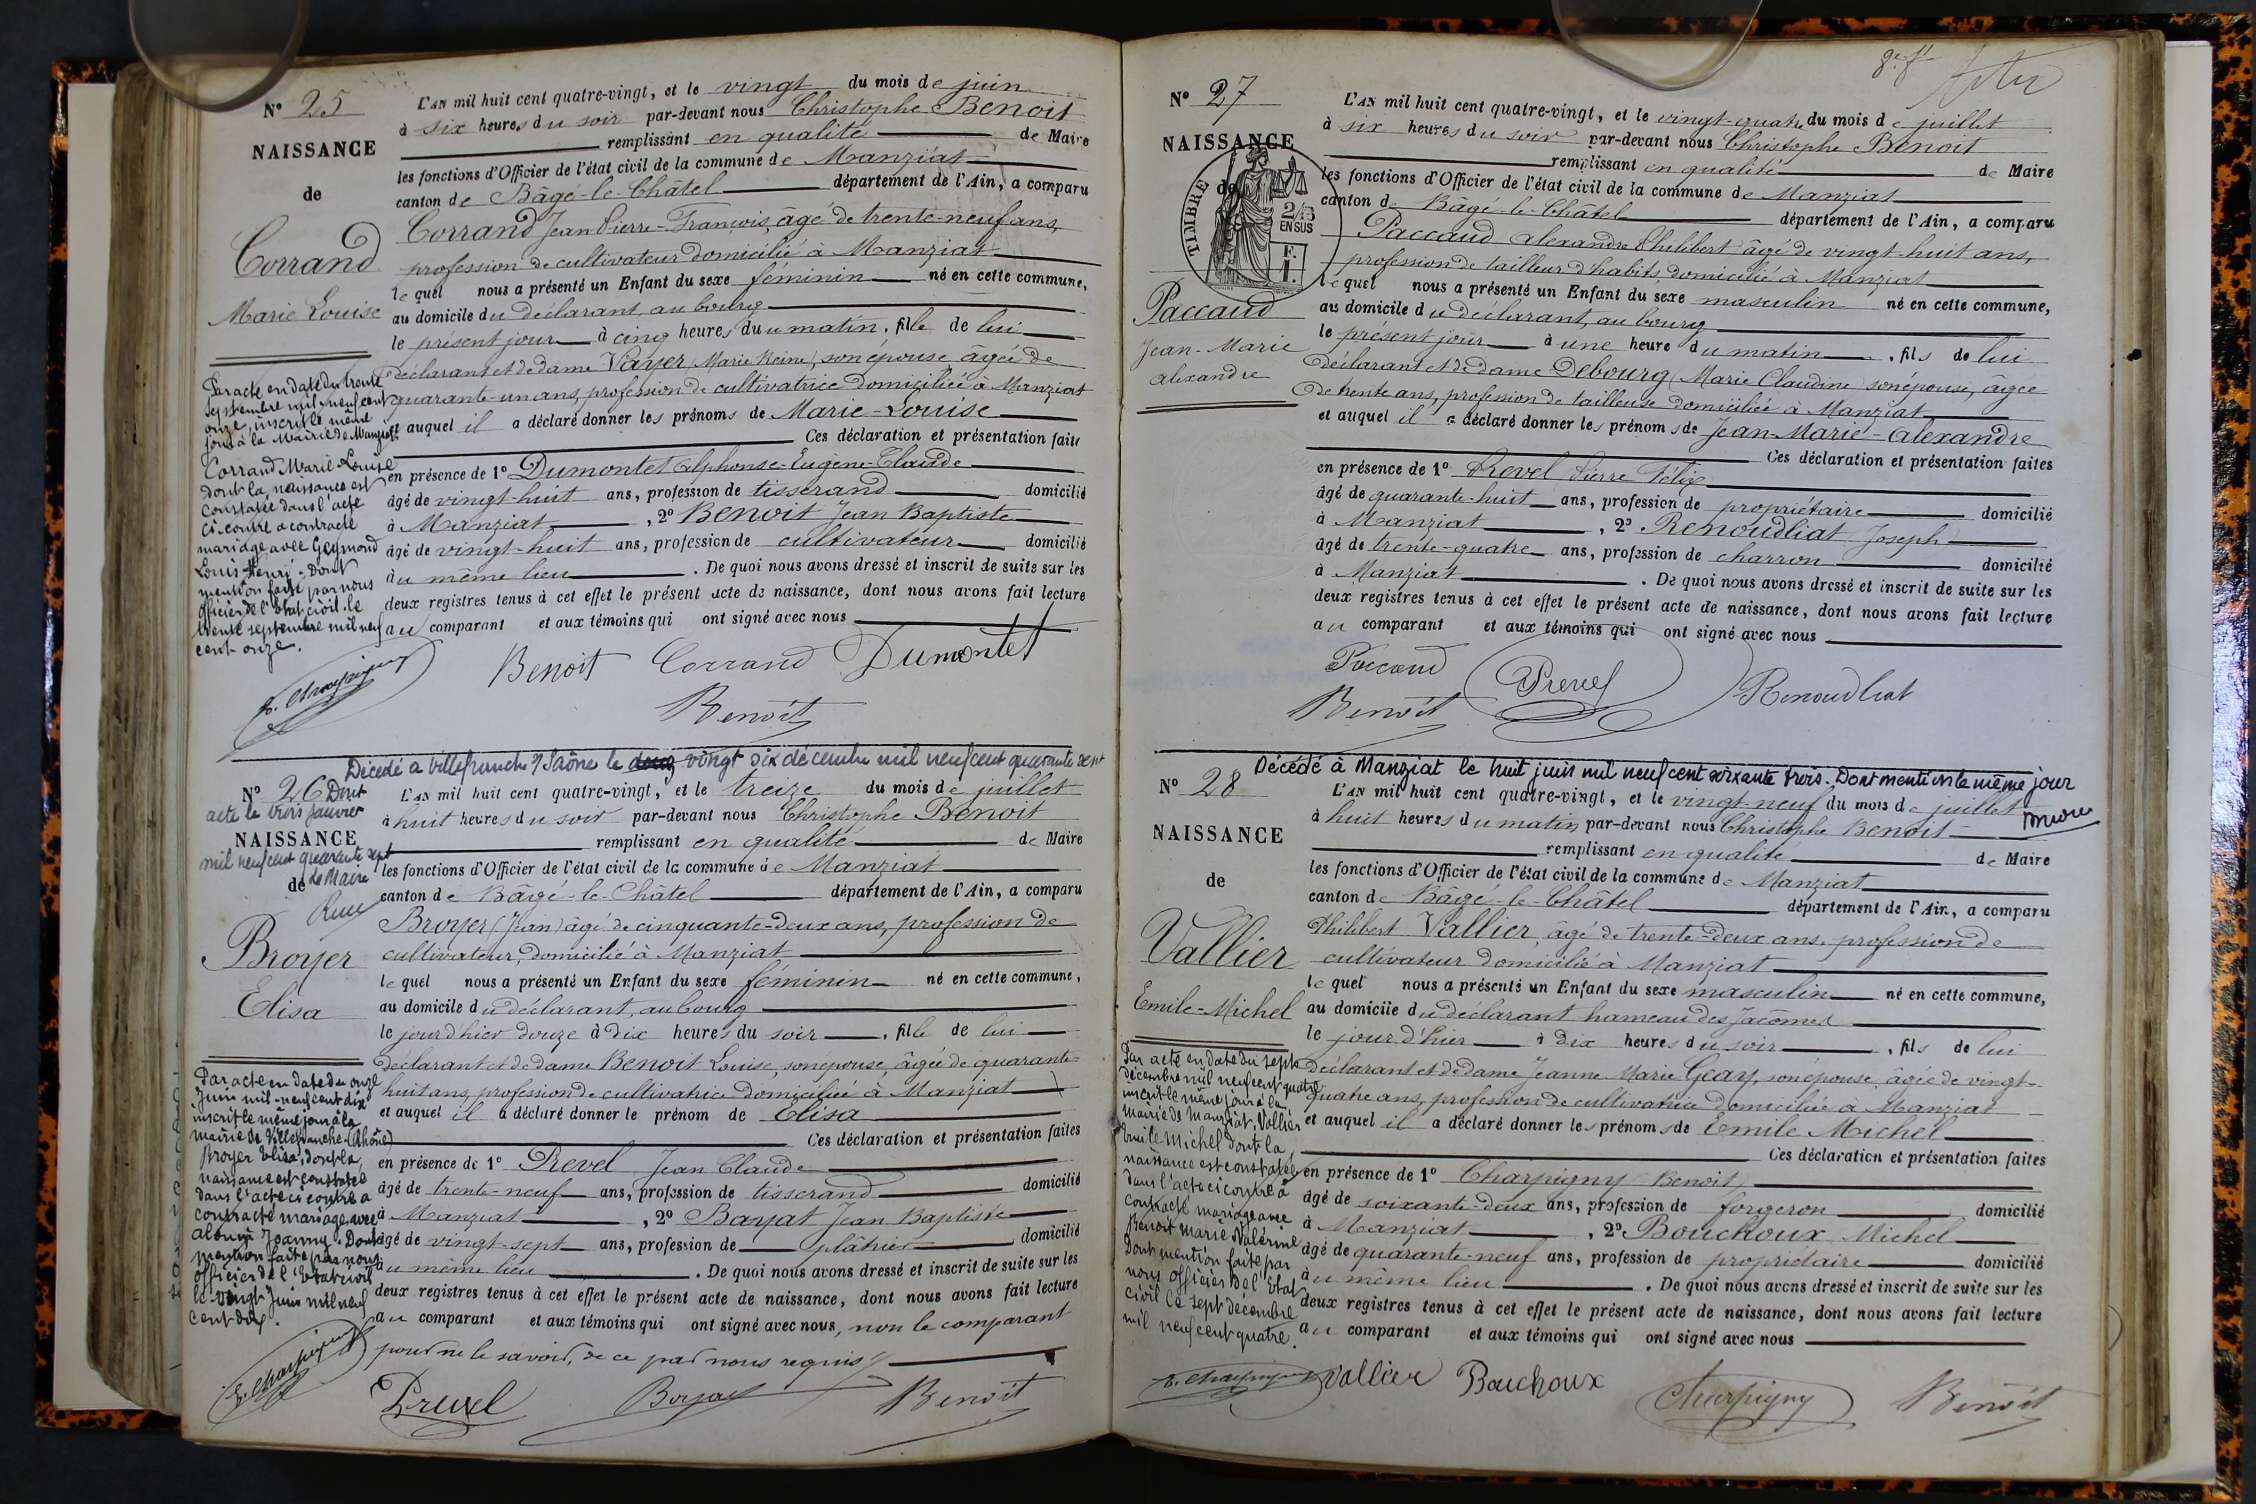 N° 25
NAISSANCE
de
Corrand
Marie Louise
L'AN mil huit cent quatre-vingt, et le vingt du mois de juin
à six heures du soir par-devant nous Christophe Benoit
remplissant en qualité de Maire
les fonctions d'Officier de l'état civil de la commune de Manziat
canton de Bâgé-le-Châtel département de l'Ain, a comparu
Corrand Jean Pierre-François, âgé de trente-neuf ans,
profession de cultivateur domicilié à Manziat
lequel nous a présenté un Enfant du sexe féminin né en cette commune,
au domicile du déclarant, au bourg
le présent jour à cinq heures du matin, fille de lui
déclarant et de dame Vayer (Marie Reine), son épouse âgée de
quarante-un ans, profession de cultivatrice domiciliée à Manziat
et auquel il a déclaré donner les prénoms de Marie-Louise
Ces déclaration et présentation faites
en présence de 1° Dumontet Alphonse-Eugène-Claude
âgé de vingt-huit ans, profession de tisserand domicilié
à Manziat, 2° Benoit Jean Baptiste
âgé de vingt-huit ans, profession de cultivateur domicilié
au même lieu. De quoi nous avons dressé et inscrit de suite sur les
deux registres tenus à cet effet le présent acte de naissance, dont nous avons fait lecture
au comparant et aux témoins qui ont signé avec nous
Benoit Corrand Dumontet
Benoit
Par acte en date du trente
septembre mil-neuf cent
onze, inscrit le même
jour à la Mairie de Manziat
Corrand Marie-Louise
dont la naissance est
constatée dans l'acte
ci-contre a contracté
mariage avec Geymond
Louis Henri. Dont
mention faite par nous
officier de l'Etat civil le
trente septembre mil neuf
cent onze.
E. Charpigny
Décédé à Villefranche s/ Saône le vingt six décembre mil neuf cent quarante sept
N° 26 Dont
acte le trois janvier
NAISSANCE
mil neuf cent quarante sept
de Le Maire
Broyer
Elisa
L'AN mil huit cent quatre-vingt, et le treize du mois de juillet
à huit heures du soir par-devant nous Christophe Benoit
remplissant en qualité de Maire
les fonctions d'Officier de l'état civil de la commune de Manziat
canton de Bâgé-le-Châtel département de l'Ain, a comparu
Broyer (Jean) âgé de cinquante-deux ans, profession de
cultivateur, domicilié à Manziat
lequel nous a présenté un Enfant du sexe féminin né en cette commune,
au domicile du déclarant, au bourg
le jour d'hier douze à dix heures du soir, fille de lui
déclarant et de dame Benoit Louise, son épouse, âgée de quarante-
huit ans, profession de cultivatrice domiciliée à Manziat
et auquel il a déclaré donner le prénom de Elisa
Ces déclaration et présentation faites
en présence de 1° Prevel Jean Claude
âgé de trente-neuf ans, profession de tisserand domicilié
à Manziat, 2° Bayat Jean Baptiste
âgé de vingt-sept ans, profession de plâtrier domicilié
au même lieu. De quoi nous avons dressé et inscrit de suite sur les
deux registres tenus à cet effet le présent acte de naissance, dont nous avons fait lecture
au comparant et aux témoins qui ont signé avec nous, non le comparant
pour ne le savoir, de ce par nous requis
Prevel Benoit
Par acte en date du onze
Juin mil-neuf cent dix
inscrit le même jour à la
mairie de Villefranche (Rhône)
Broyer Elisa, dont la
naissance est constatée
dans l'acte ci contre a
contracté mariage avec
Joanny. Dont
mention faite par nous
officier de l'Etat civil
le vingt Juin mil neuf
cent dix.
E. Charpigny
N° 27
NAISSANCE
de
TIMBRE
2/10
EN SUS
F.
1.
Paccaud
Jean-Marie
Alexandre
L'AN mil huit cent quatre-vingt, et le vingt-quatre du mois de juillet
à six heures du soir par-devant nous Christophe Benoit
remplissant en qualité de Maire
les fonctions d'Officier de l'état civil de la commune de Manziat
canton de Bâgé-le-Châtel département de l'Ain, a comparu
Paccaud Alexandre Philibert âgé de vingt-huit ans,
profession de tailleur d'habits domicilié à Manziat
lequel nous a présenté un Enfant du sexe masculin né en cette commune,
au domicile du déclarant, au bourg
le présent jour à une heure du matin, fils de lui
déclarant et de dame Debourg (Marie Claudine) son épouse, âgée
de trente ans, profession de tailleuse domiciliée à Manziat
et auquel il a déclaré donner les prénoms de Jean-Marie-Alexandre
Ces déclaration et présentation faites
en présence de 1° Prevel Pierre Félix
âgé de quarante-huit ans, profession de propriétaire domicilié
à Manziat, 2° Renoudliat Joseph
âgé de trente-quatre ans, profession de charron domicilié
à Manziat. De quoi nous avons dressé et inscrit de suite sur les
deux registres tenus à cet effet le présent acte de naissance, dont nous avons fait lecture
au comparant et aux témoins qui ont signé avec nous
Paccaud Prevel Renoudliat
Benoit
Décédé à Manziat le huit juin mil neuf cent soixante trois. Dont mention le même jour
N° 28
NAISSANCE
de
Vallier
Emile-Michel
L'AN mil huit cent quatre-vingt, et le vingt-neuf du mois de juillet
à huit heures du matin par-devant nous Christophe Benoit
remplissant en qualité de Maire
les fonctions d'Officier de l'état civil de la commune de Manziat
canton de Bâgé-le-Châtel département de l'Ain, a comparu
Philibert Vallier, âgé de trente-deux ans, profession de
cultivateur domicilié à Manziat
lequel nous a présenté un Enfant du sexe masculin né en cette commune,
au domicile du déclarant hameau des Jacômes
le jour d'hier à dix heures du soir, fils de lui
déclarant et de dame Jeanne Marie Geay, son épouse, âgée de vingt-
quatre ans, profession de cultivatrice domiciliée à Manziat
et auquel il a déclaré donner les prénoms de Emile Michel
Ces déclaration et présentation faites
en présence de 1° Charpigny Benoit
âgé de soixante-deux ans, profession de forgeron domicilié
à Manziat, 2° Bouchoux Michel
âgé de quarante-neuf ans, profession de propriétaire domicilié
au même lieu. De quoi nous avons dressé et inscrit de suite sur les
deux registres tenus à cet effet le présent acte de naissance, dont nous avons fait lecture
au comparant et aux témoins qui ont signé avec nous
Vallier Bouchoux Charpigny Benoit
Par acte en date du sept
décembre mil neuf cent quatre
inscrit le même jour à la
mairie de Manziat, Vallier
Emile Michel dont la
naissance est constatée
dans l'acte ci contre a
contracté mariage avec
Benoit Marie Valérine
Dont mention faite par
nous officier de l'Etat
civil le sept décembre
mil neuf cent quatre.
E. Charpigny